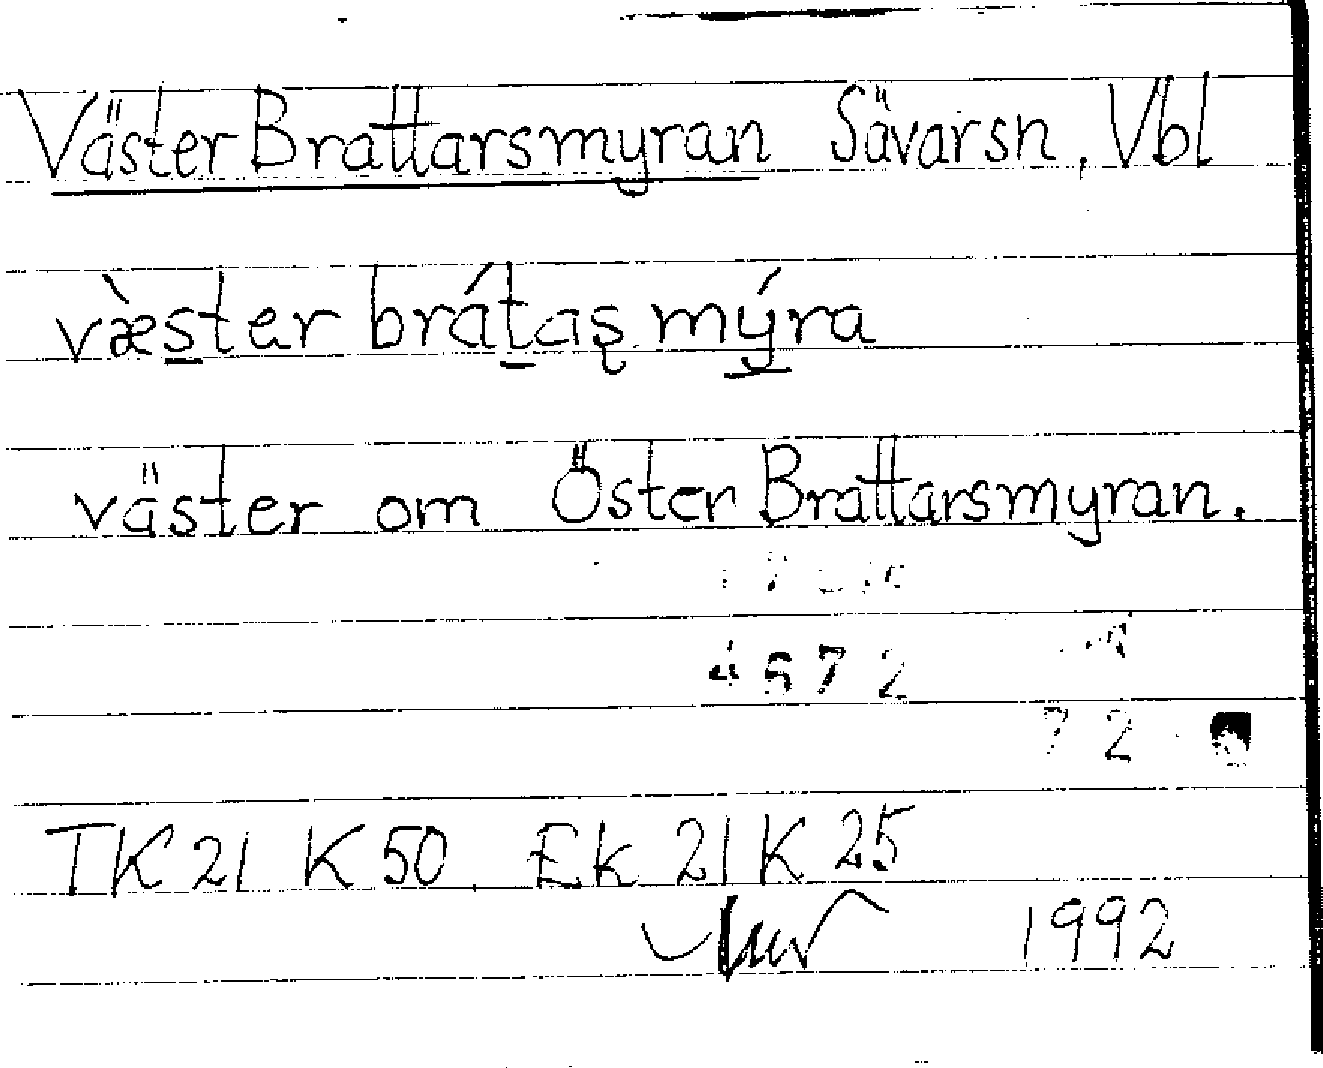 Väster Brattarsmyran Sävar sn, Vbl
væ̀s̲ter brát̲aş mý̲ra
väster om Öster Brattarsmyran.
72
TK 21 K 50 Ek 21 K 25
1992